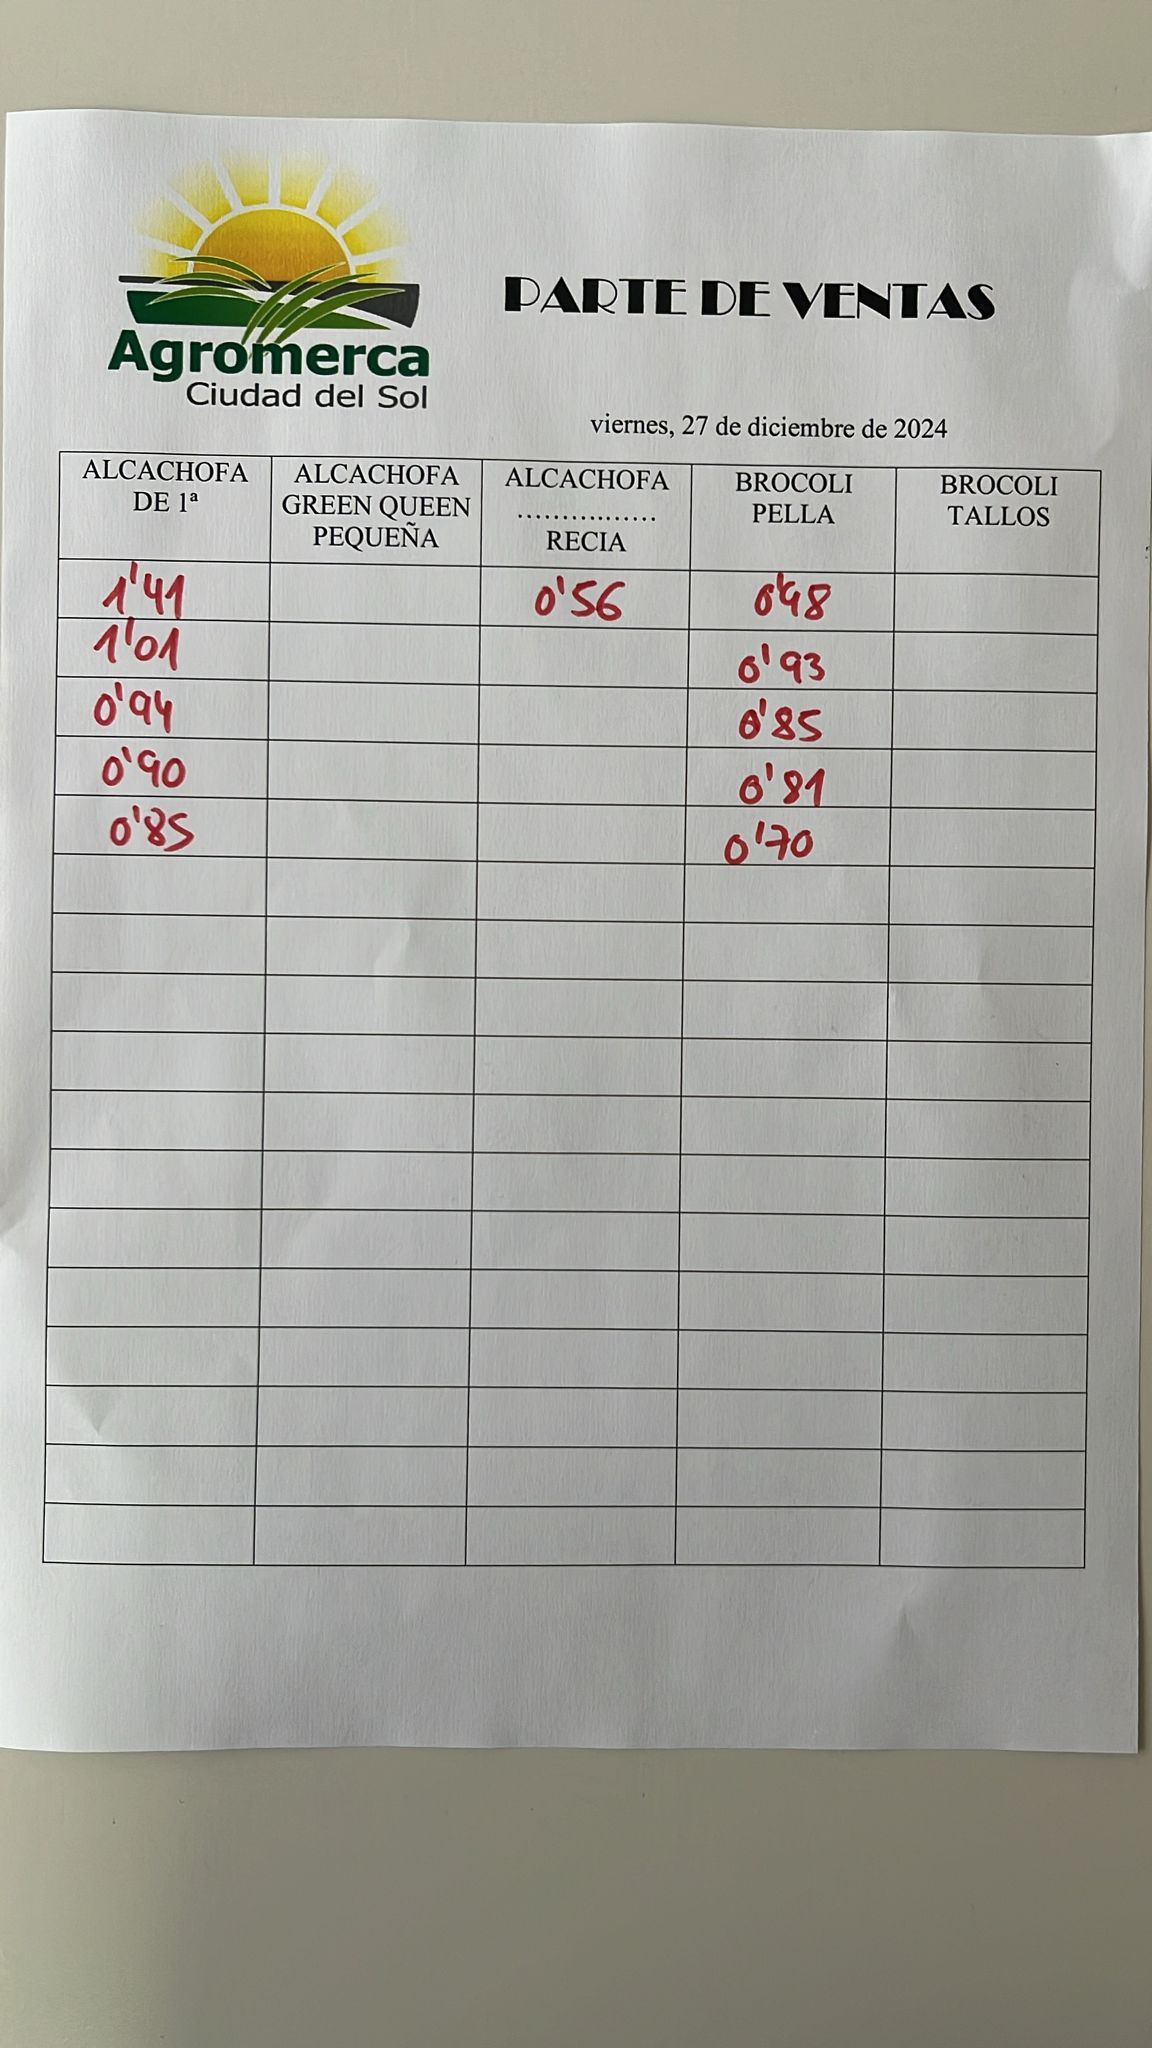 Agromerca
Ciudad del Sol
PARTE DE VENTAS
viernes, 27 de diciembre de 2024
ALCACHOFA DE 1ª
ALCACHOFA GREEN QUEEN PEQUEÑA
ALCACHOFA ................ RECIA
BROCOLI PELLA
BROCOLI TALLOS
1'41 0'56 0'48
1'01 0'93
0'94 0'85
0'90 0'81
0'85 0'70